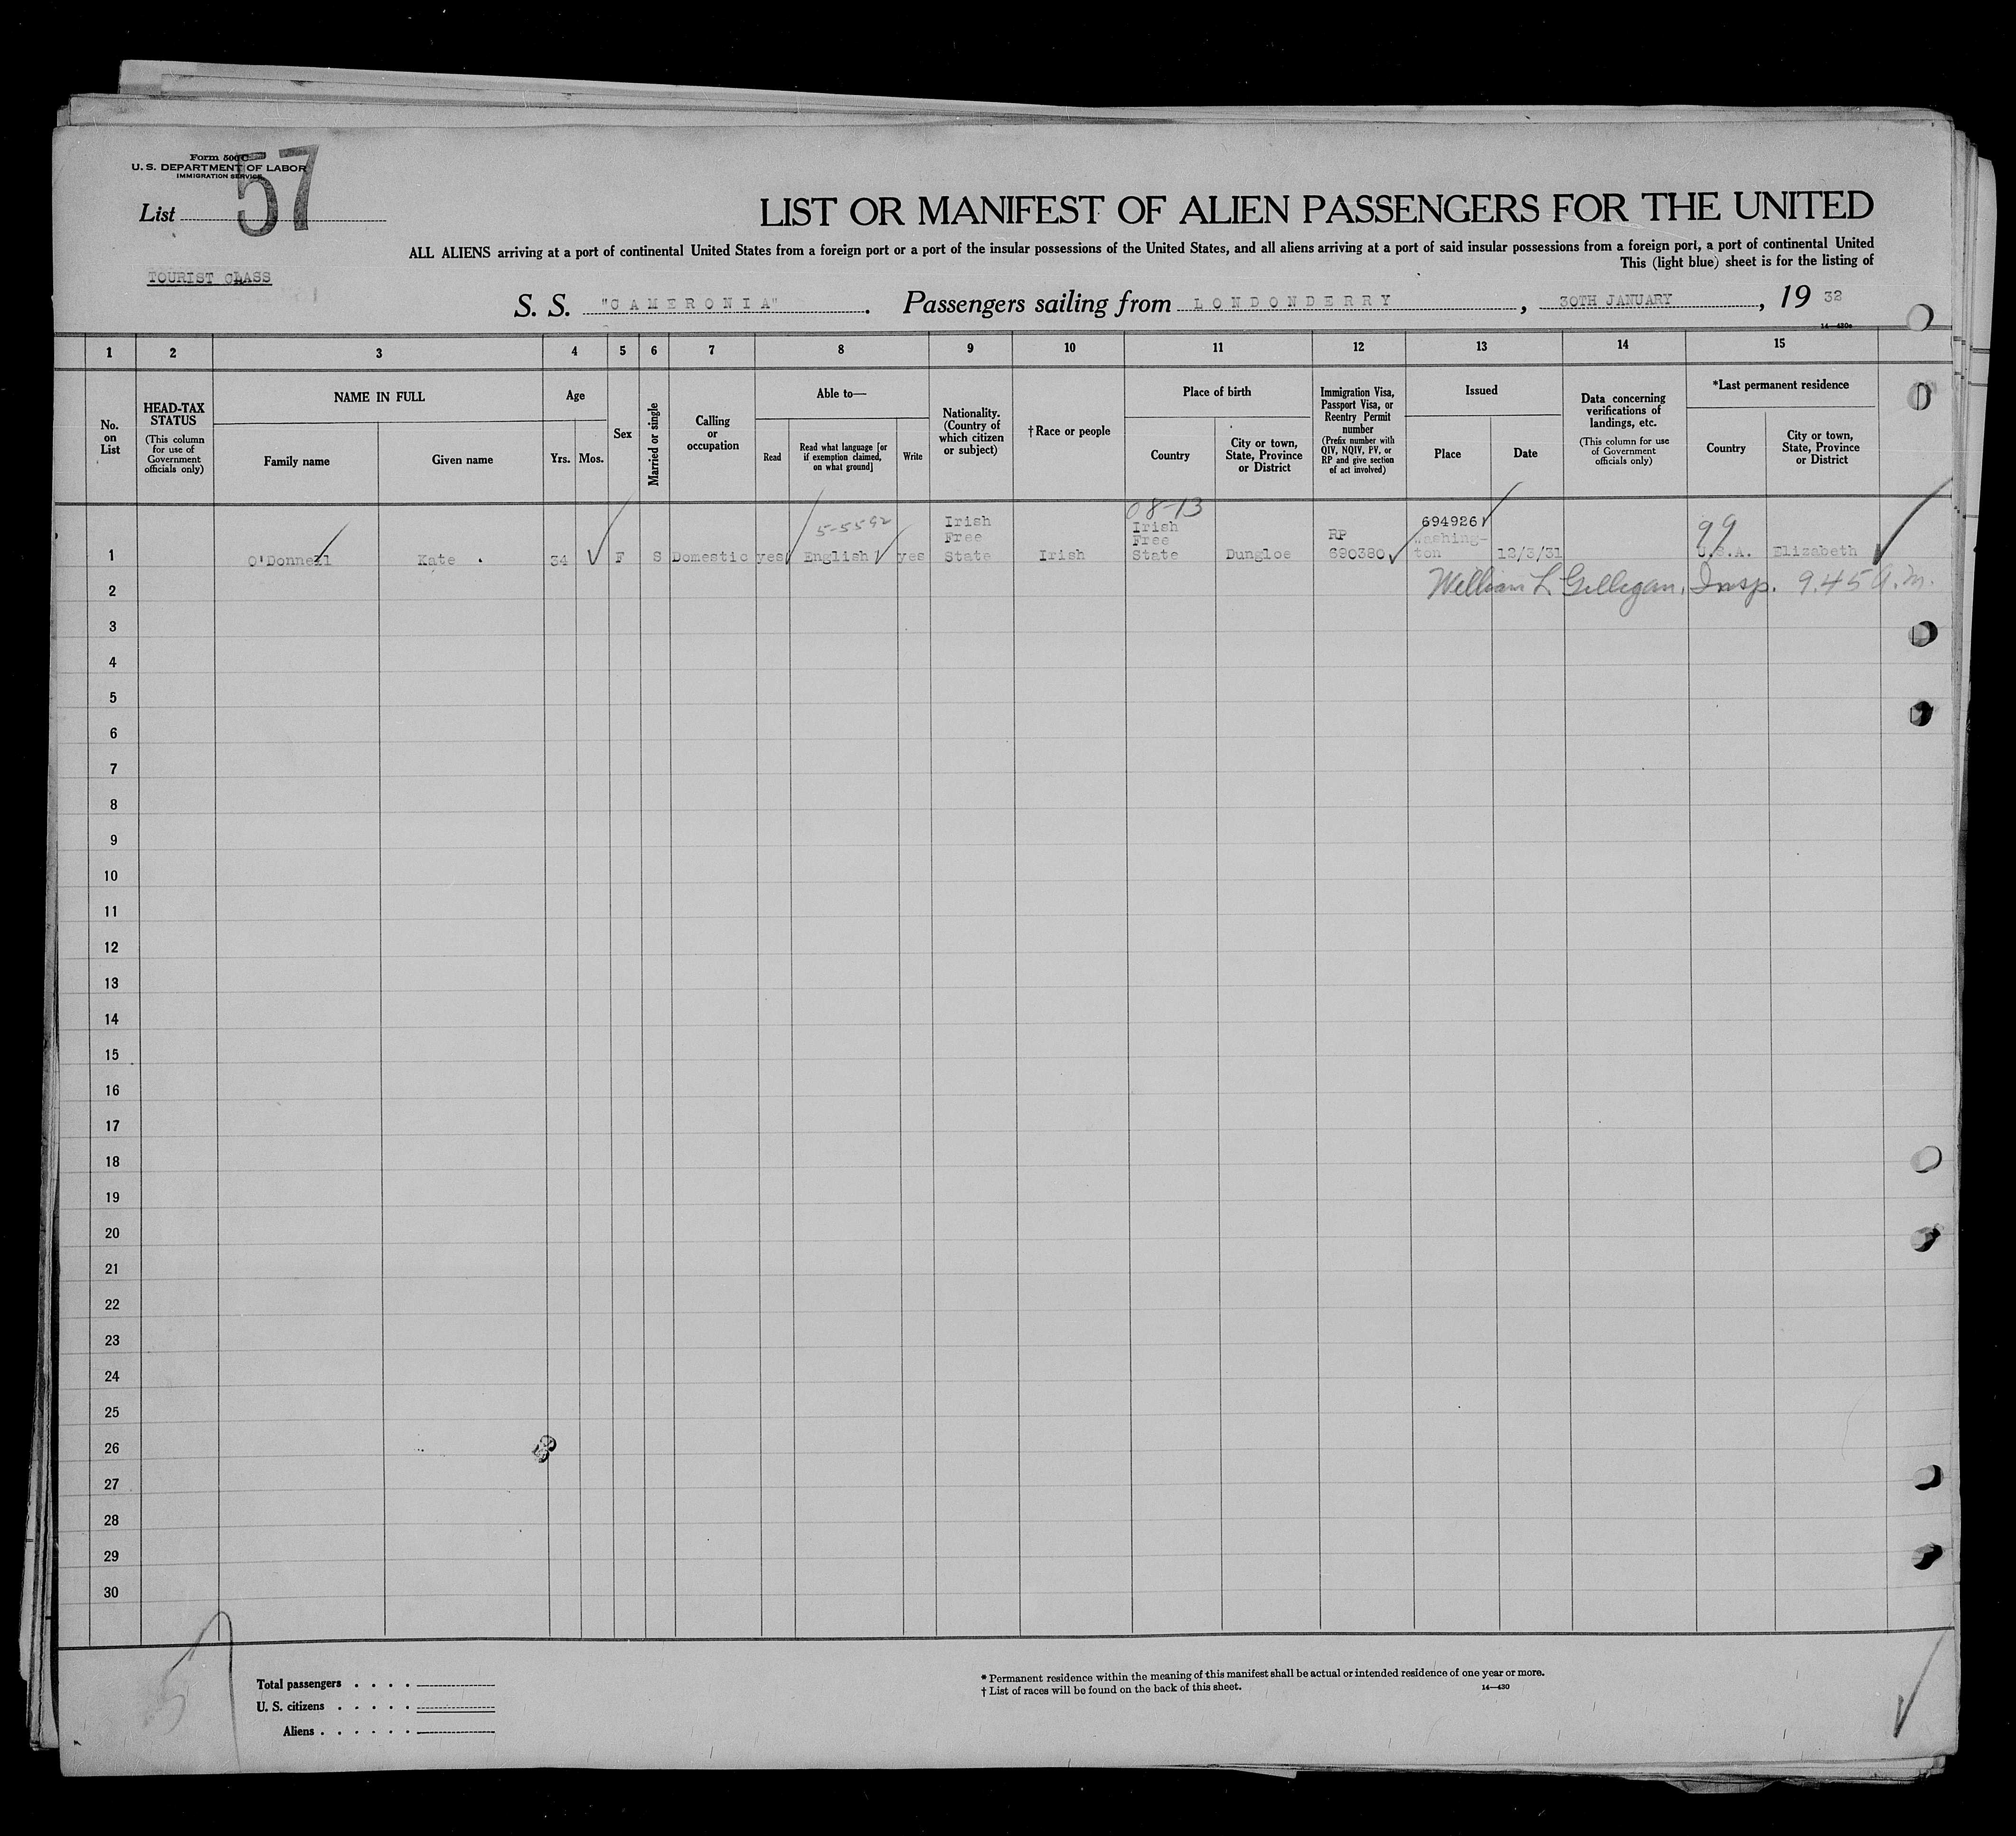 Form 500 C
U. S. DEPARTMENT OF LABOR
IMMIGRATION SERVICE
List 57
LIST OR MANIFEST OF ALIEN PASSENGERS FOR THE UNITED
ALL ALIENS arriving at a port of continental United States from a foreign port or a port of the insular possessions of the United States, and all aliens arriving at a port of said insular possessions from a foreign port, a port of continental United
This (light blue) sheet is for the listing of
TOURIST CLASS
S. S. "CAMERONIA". Passengers sailing from LONDONDERRY, 30TH JANUARY, 19 32
14—430a
1 2 3 4 5 6 7 8 9 10 11 12 13 14 15
No. on List
HEAD-TAX STATUS
(This column for use of Government officials only)
NAME IN FULL
Family name
Given name
Age
Yrs. Mos.
Sex
Married or single
Calling or occupation
Able to—
Read
Read what language [or if exemption claimed, on what ground]
Write
Nationality. (Country of which citizen or subject)
†Race or people
Place of birth
Country
City or town, State, Province or District
Immigration Visa, Passport Visa, or Reentry Permit number
(Prefix number with QIV, NQIV, PV, or RP and give section of act involved)
Issued
Place
Date
Data concerning verifications of landings, etc.
(This column for use of Government officials only)
*Last permanent residence
Country
City or town, State, Province or District
08-13
5-5592
694926
99
1 O'Donnell Kate . 34 F S Domestic yes English yes Irish Free State Irish Irish Free State Dungloe RP 690380 Washing-ton 12/3/31 U.S.A. Elizabeth
William L. Gilligan, Insp. 9.45 a.m.
2
3
4
5
6
7
8
9
10
11
12
13
14
15
16
17
18
19
20
21
22
23
24
25
26
27
28
29
30
57
Total passengers . . . .
U. S. citizens . . . . .
Aliens . . . . . .
* Permanent residence within the meaning of this manifest shall be actual or intended residence of one year or more.
† List of races will be found on the back of this sheet.
14—430